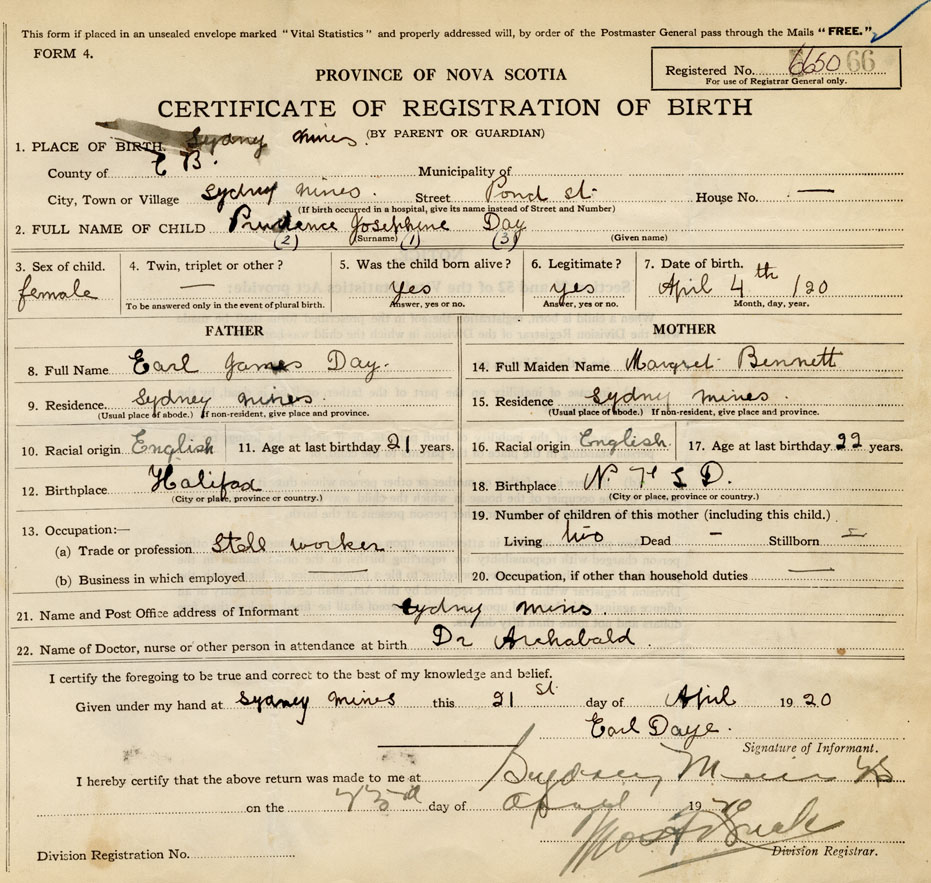 This form if placed in an unsealed envelope marked "Vital Statistics" and properly addressed will, by order of the Postmaster General pass through the Mails "FREE."
FORM 4.
PROVINCE OF NOVA SCOTIA
Registered No. 6650 66
For use of Registrar General only.
CERTIFICATE OF REGISTRATION OF BIRTH
(BY PARENT OR GUARDIAN)
1. PLACE OF BIRTH. Sydney Mines.
County of C B. Municipality of
City, Town or Village Sydney Mines. Street Pond St. House No. —
(If birth occurred in a hospital, give its name instead of Street and Number)
2. FULL NAME OF CHILD Prudence Josephine Day
(2) (Surname) (1) (3) (Given name)
3. Sex of child. 4. Twin, triplet or other? 5. Was the child born alive? 6. Legitimate? 7. Date of birth.
female — yes yes April 4th /20
To be answered only in the event of plural birth. Answer, yes or no. Answer, yes or no. Month, day, year.
FATHER MOTHER
8. Full Name Earl James Day. 14. Full Maiden Name Margret Bennett
9. Residence Sydney Mines. 15. Residence Sydney Mines.
(Usual place of abode.) If non-resident, give place and province. (Usual place of abode.) If non-resident, give place and province.
10. Racial origin English 11. Age at last birthday 21 years. 16. Racial origin English. 17. Age at last birthday 22 years.
12. Birthplace Halifad 18. Birthplace N. F L D.
(City or place, province or country.) (City or place, province or country.)
13. Occupation:— 19. Number of children of this mother (including this child.)
(a) Trade or profession Stell worker Living two Dead - Stillborn -
(b) Business in which employed — 20. Occupation, if other than household duties —
21. Name and Post Office address of Informant Sydney Mines.
22. Name of Doctor, nurse or other person in attendance at birth Dr Archabald.
I certify the foregoing to be true and correct to the best of my knowledge and belief.
Given under my hand at Sydney Mines this 21 St. day of April 1920
Earl Daye.
Signature of Informant.
I hereby certify that the above return was made to me at Sydney Mines NS
on the 23rd day of April 1920
Division Registration No. Division Registrar.